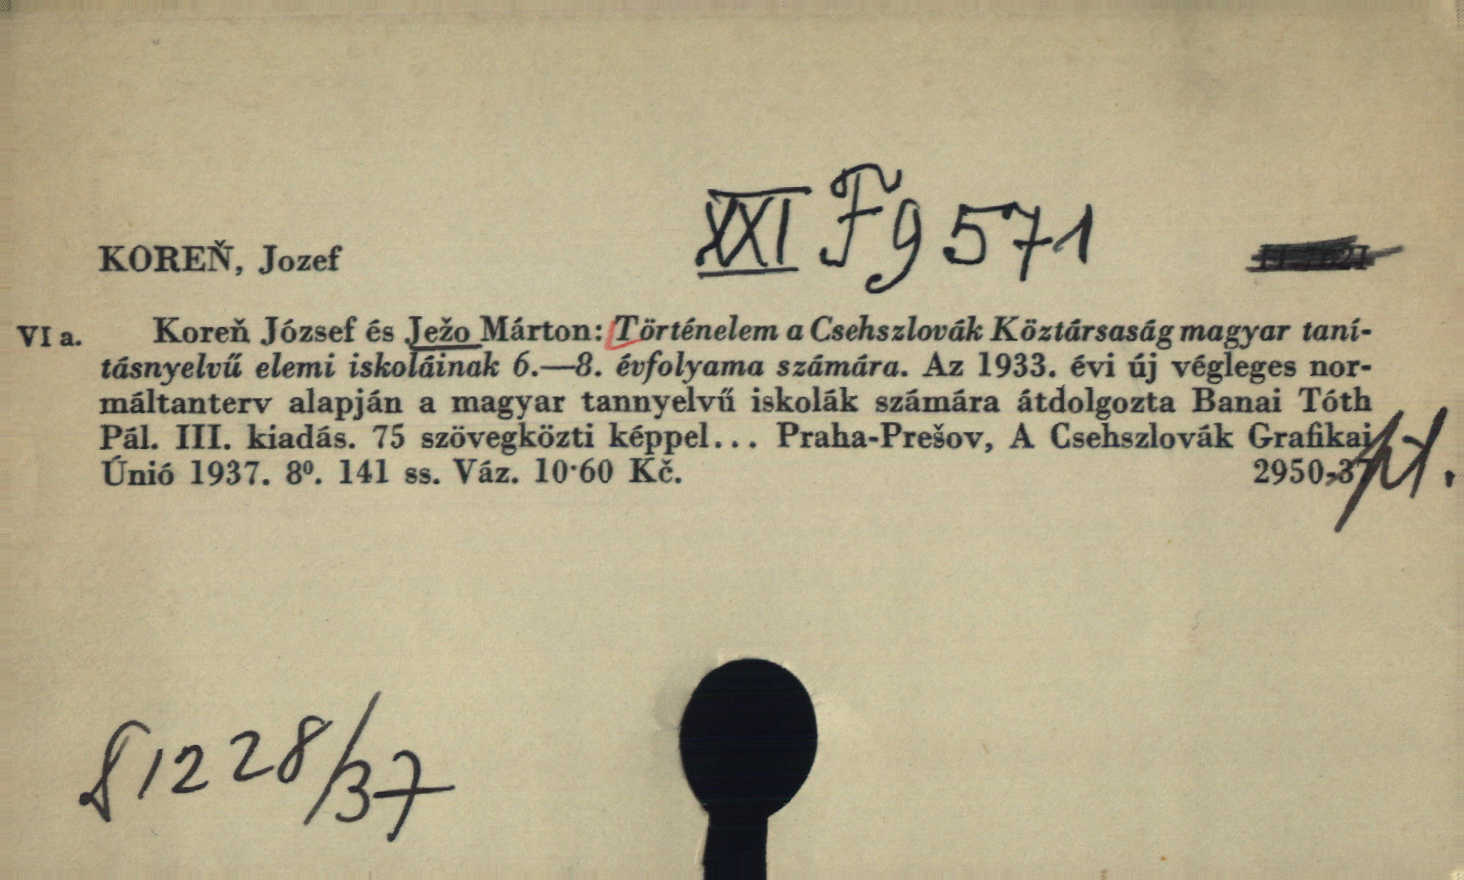 XXI F 9571
KOREŇ, Jozef
VI a. Koreň József és Ježo Márton: Történelem a Csehszlovák Köztársaság magyar taní-
tásnyelvű elemi iskoláinak 6.—8. évfolyama számára. Az 1933. évi új végleges nor-
máltanterv alapján a magyar tannyelvű iskolák számára átdolgozta Banai Tóth
Pál. III. kiadás. 75 szövegközti képpel... Praha-Prešov, A Csehszlovák Grafikai
Únió 1937. 8⁰. 141 ss. Váz. 10·60 Kč. 2950-37
1228/37